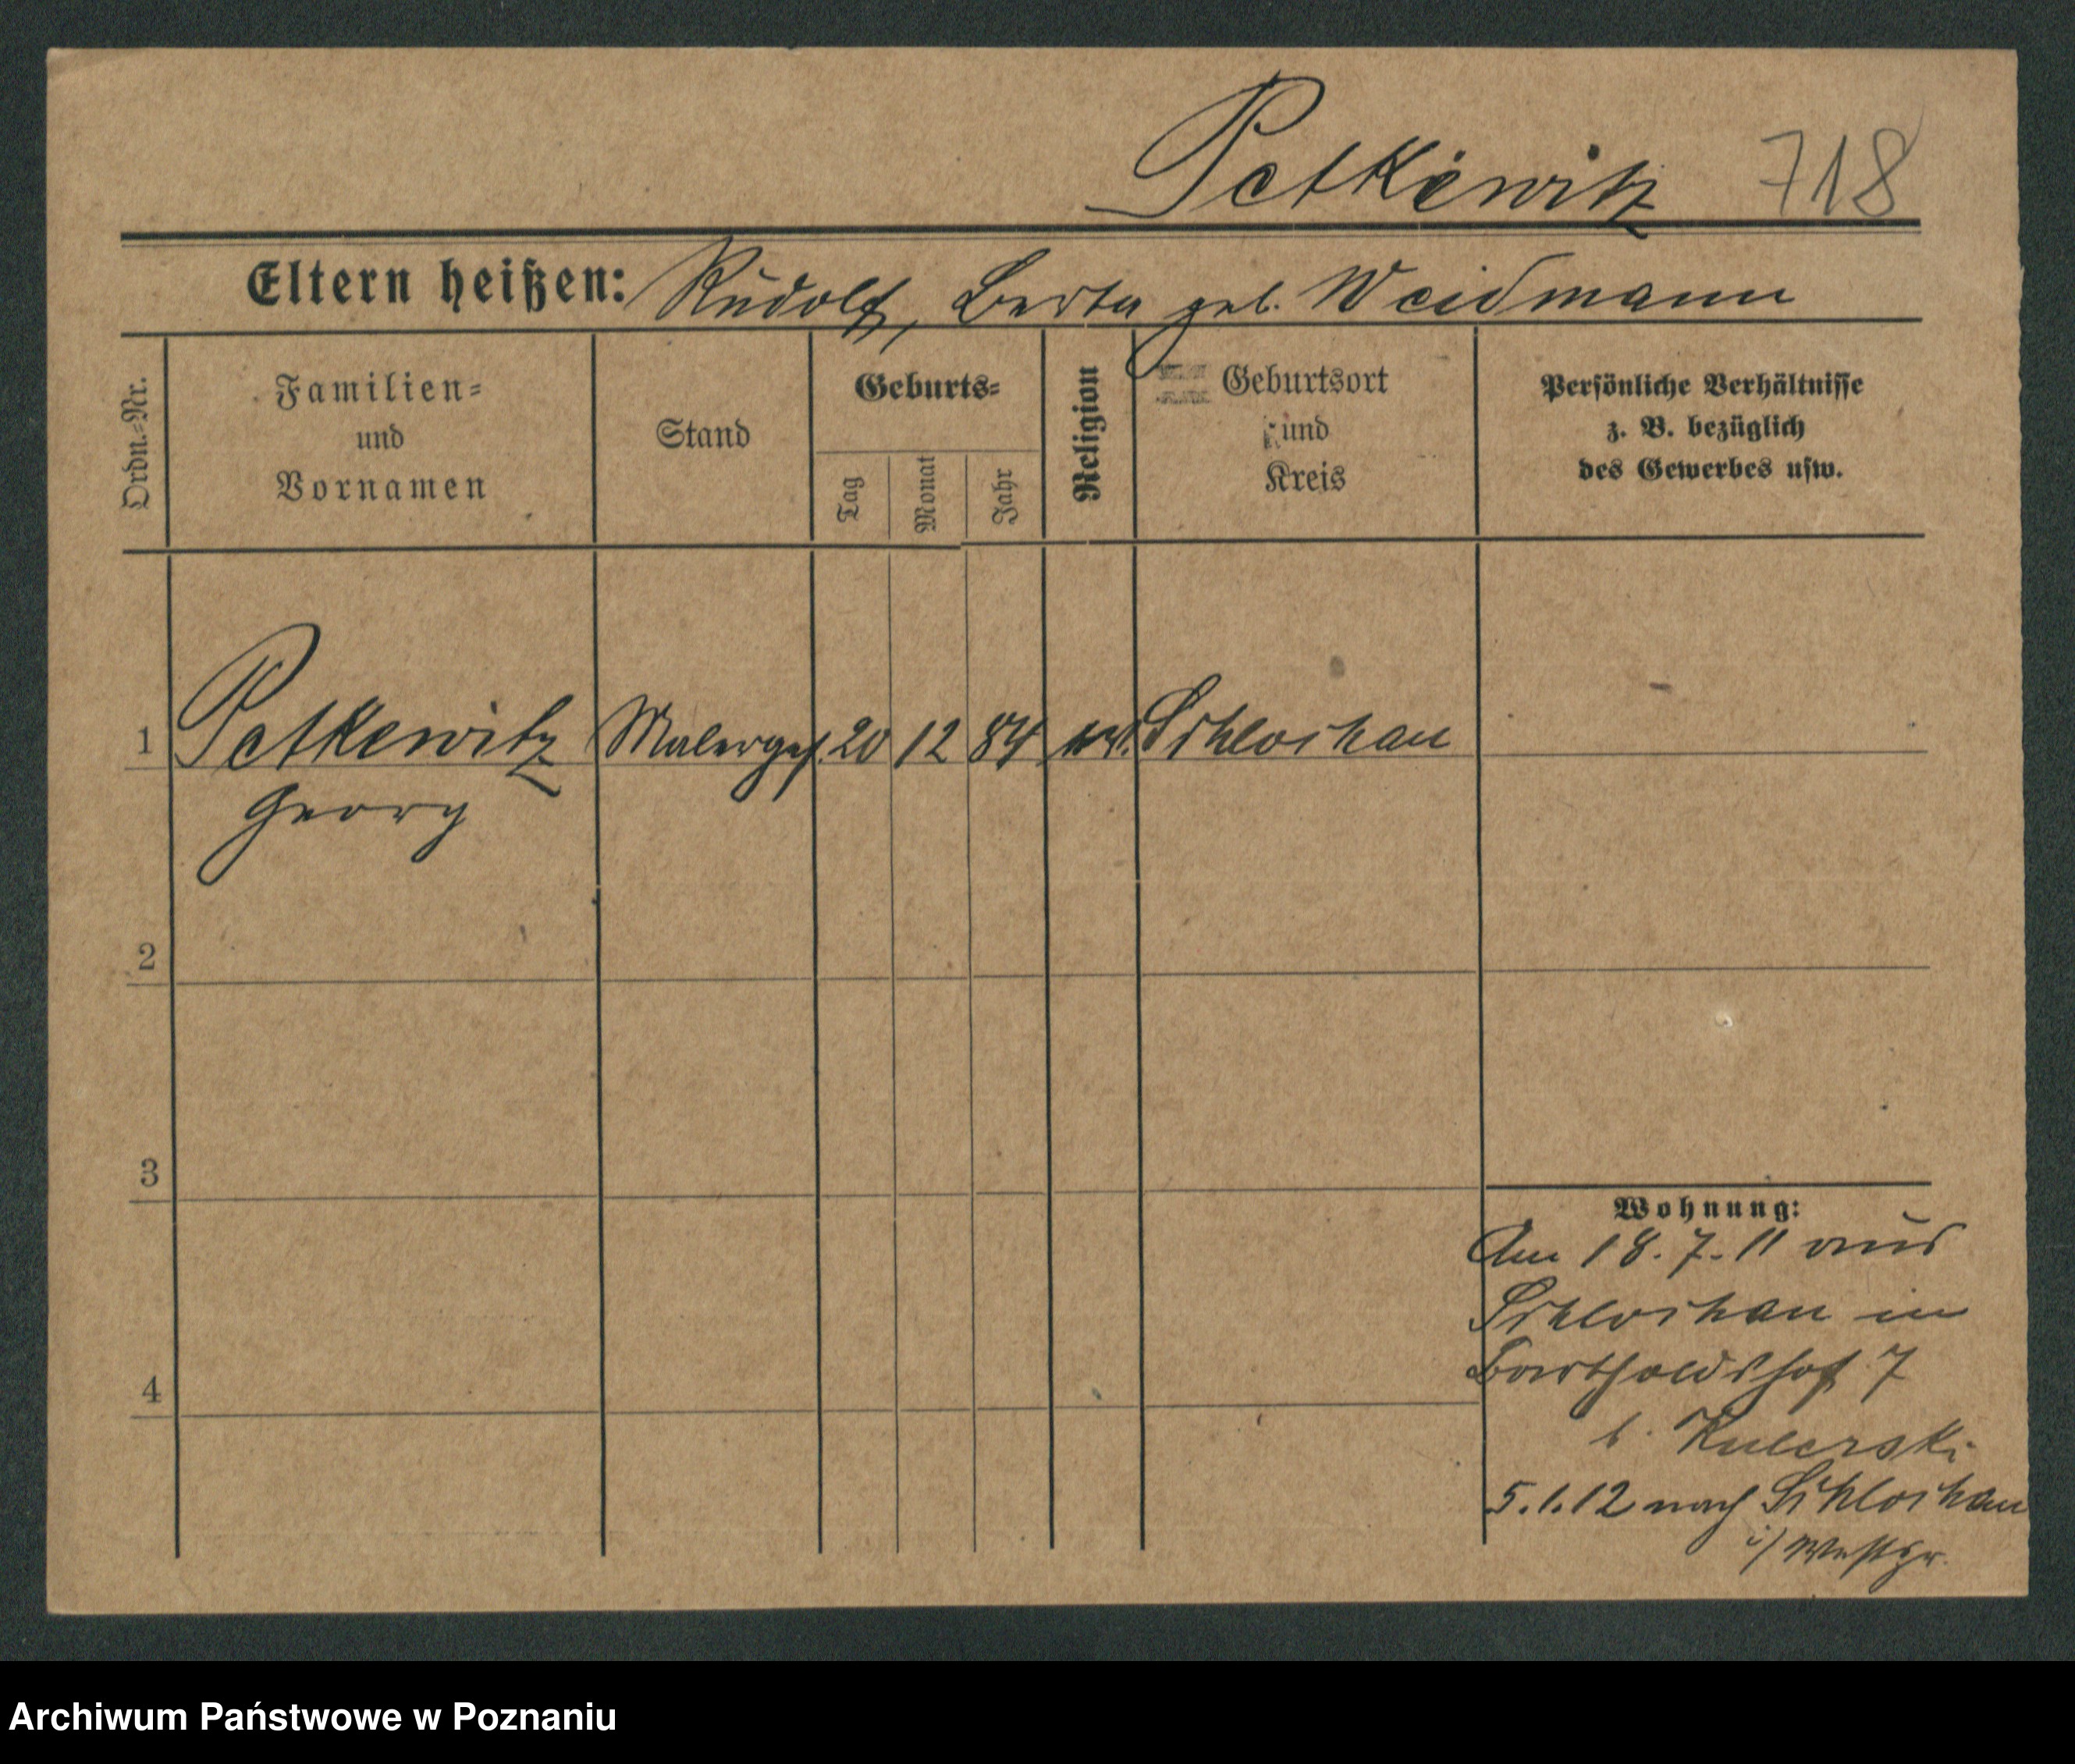 Petkewitz 718
Eltern heißen: Rudolf, Berta geb. Weidmann
Ordn.=Nr.
Familien=
und
Vornamen
Stand
Geburts=
Tag
Monat
Jahr
Religion
Geburtsort
und
Kreis
Persönliche Verhältnisse
z. B. bezüglich
des Gewerbes usw.
1 Petkewitz Malergeh. 20 12 84 Schlochau
Georg
2
3
4
Wohnung:
Am 18.7.11 aus
Schlochau in
Bartholdshof 7
b. Kulerski
5.1.12 nach Schlochau
i/ Westpr.
Archiwum Państwowe w Poznaniu